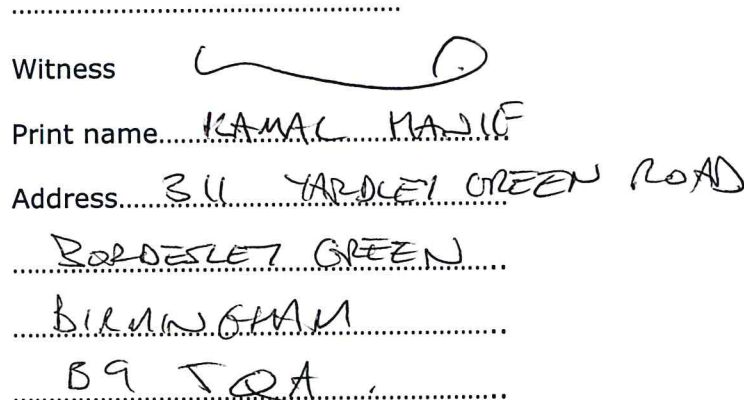 Witness
Print name..... KAMAL HANIF
Address..... 311 YARDLEY GREEN ROAD
BORDESLEY GREEN
BIRMINGHAM
B9 5QA